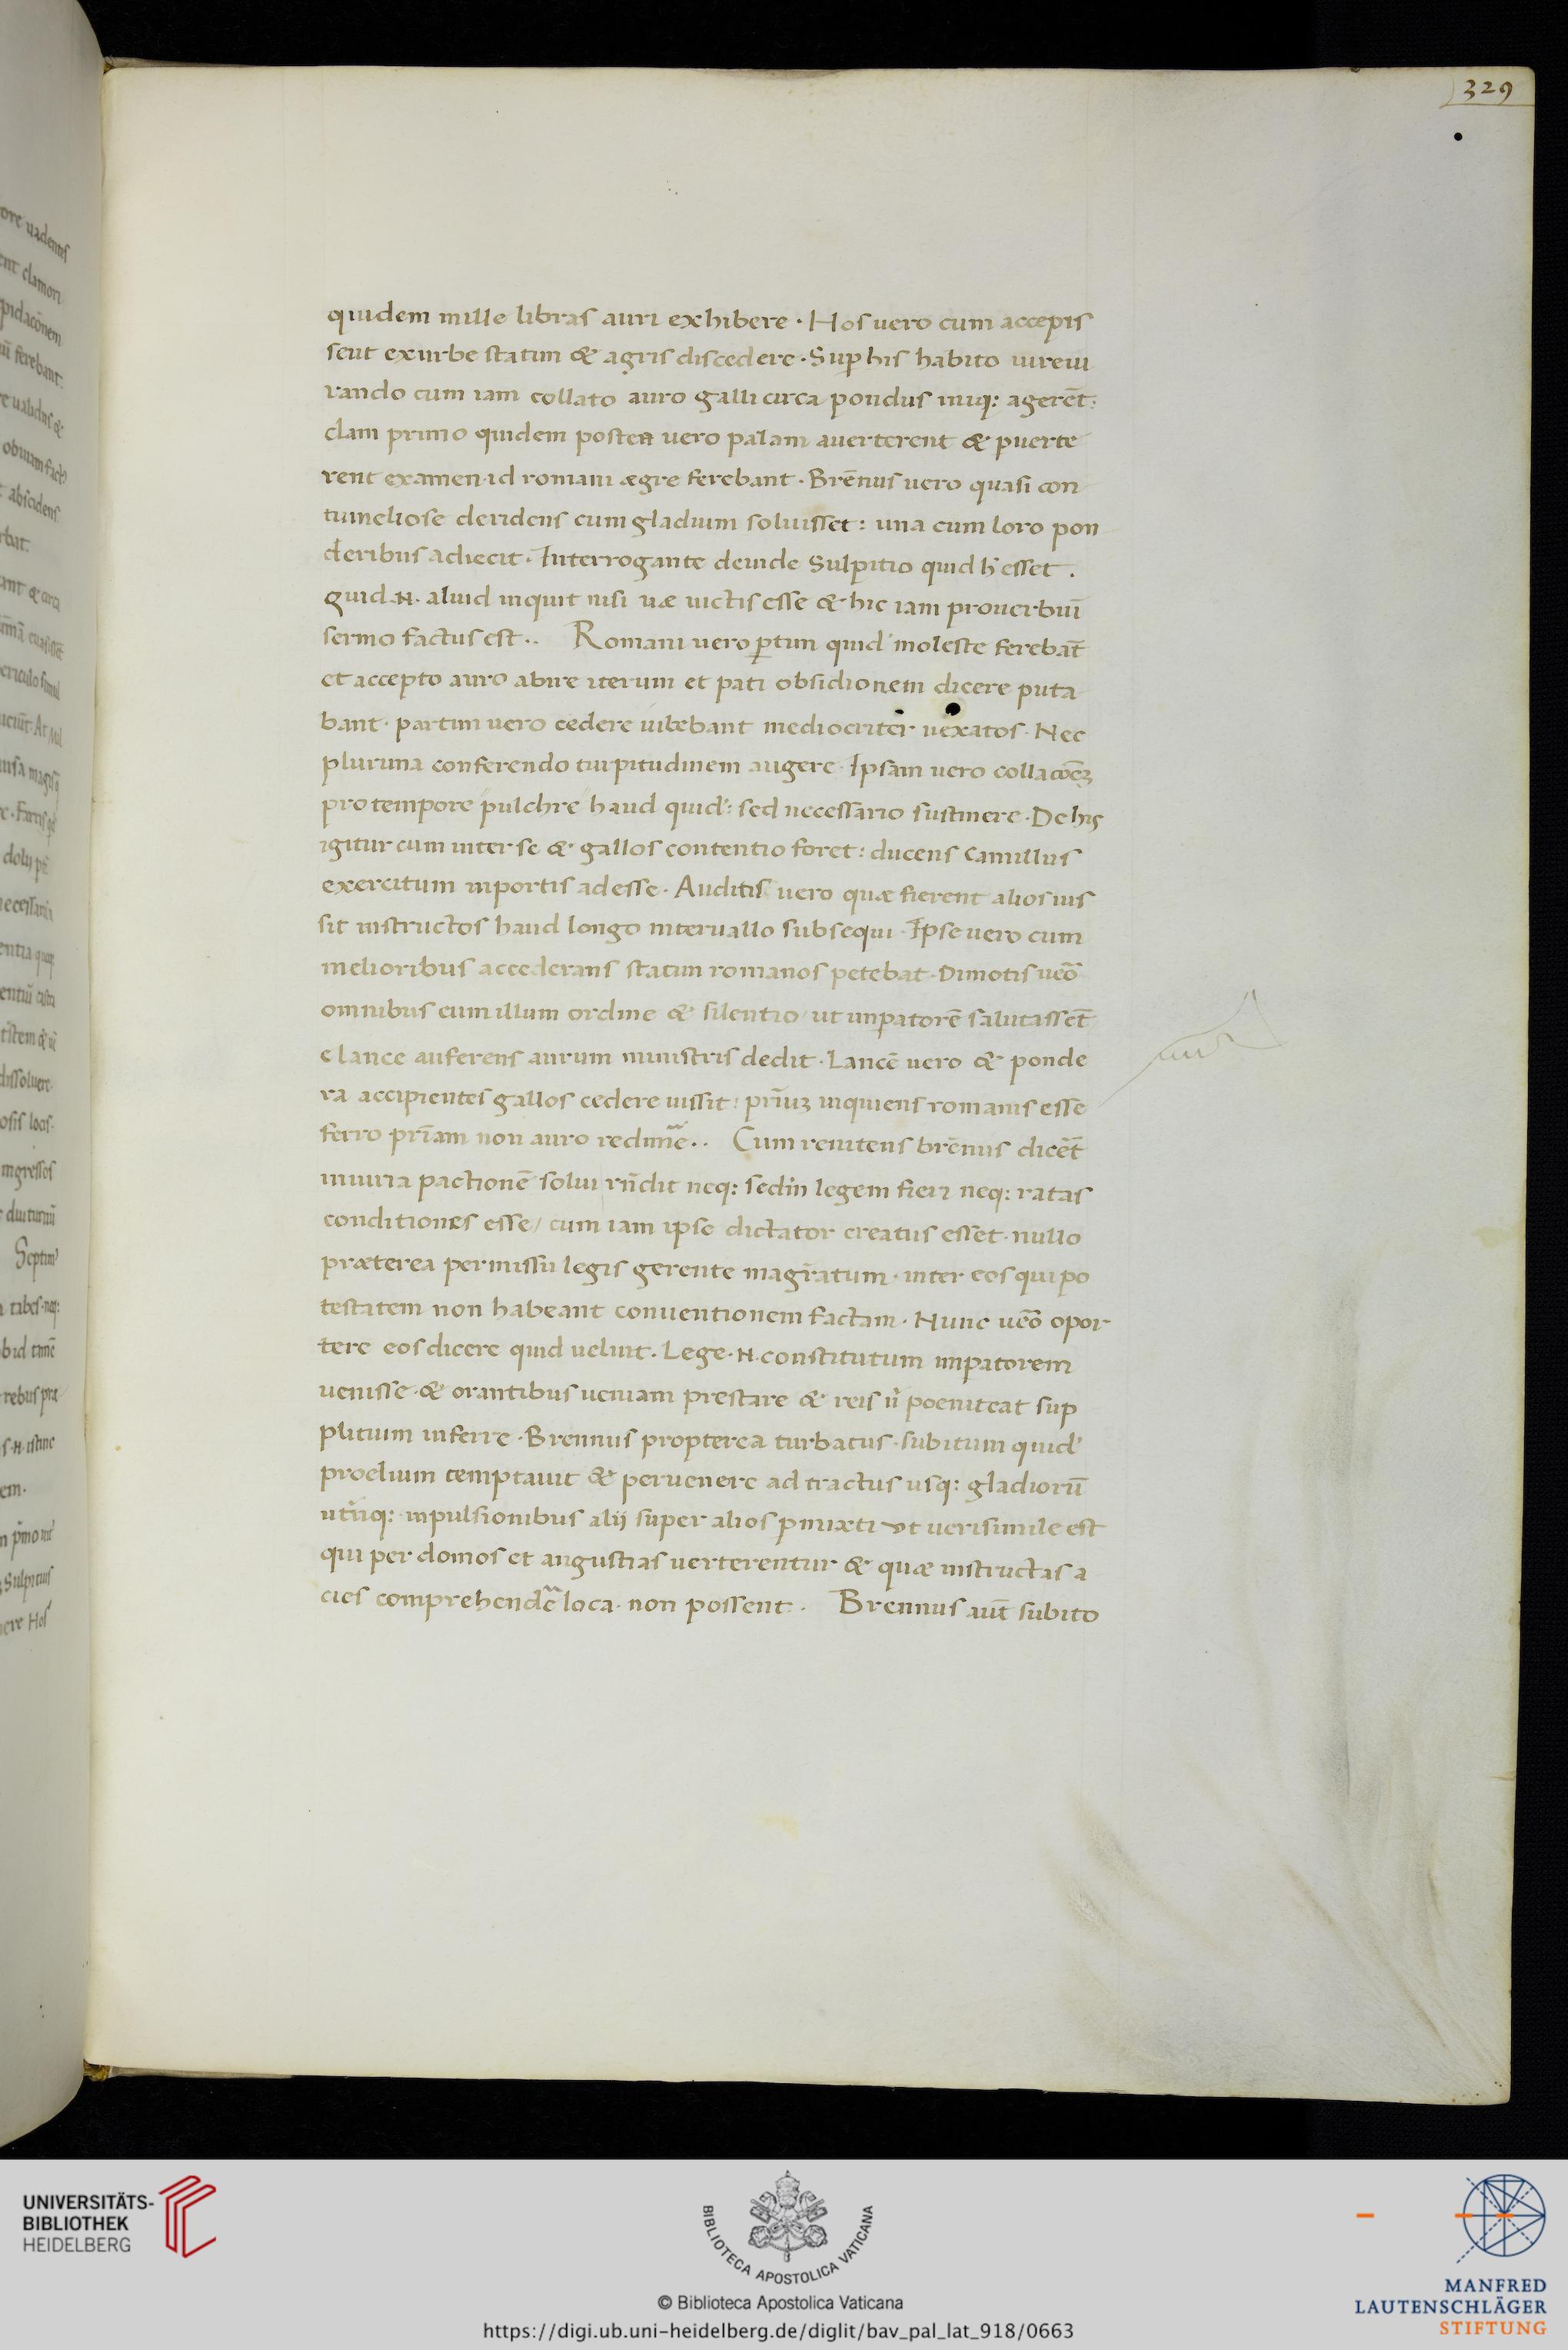 329
quidem mille libras auri exhibere · Hos vero cum accepis
sent ex urbe statim & agris discedere · Sup his habito iureiu
rando cum iam collato auro galli circa pondus iniq: agerēt:
clam primo quidem postea vero palam averterent & puerte
rent examen · id romani ægre ferebant · Brēnus vero quasi con
tumeliose deridens cum gladium solvisset: una cum loro pon
deribus adiecit · Interrogante deinde Sulpitio quid h̄ esset .
quid .N. aliud inquit nisi uæ victis esse & hic iam proverbiū
sermo factus est .. Romani vero ptim quid' moleste ferebāt
et accepto auro abire iterum et pati obsidionem dicere puta
bant · partim vero cedere iubebant mediocriter vexatos · Nec
plurima conferendo turpitudinem augere · Ipsam vero collacōēꝫ
pro tempore pulchre haud quid': sed necessario sustinere · De his
igitur cum inter se & gallos contentio foret: ducens Camillus
exercitum in portis adesse · Auditis vero quæ fierent alios ius
sit instructos haud longo intervallo subsequi · Ipse vero cum
melioribus accederans statim romanos petebat · Dimotis ueō
omnibus cum illum ordine & silentio / ut impatorē salutassēt
e lance auferens aurum ministris dedit · Lancē vero & ponde
ra accipientes gallos cedere iussit: prīuꝫ inquiens romanis esse
ferro prīam non auro redimē .. Cum renitens brēnus dicēt
iniuria pactionē solui rn̄dit neq: sed in legem fieri neq: ratas
conditiones esse / cum iam ipse dictator creatus esset · nullo
præterea permissu legis gerente magr̄atum · inter eos qui po
testatem non habeant conventionem factam · Nunc ueō opor
tere eos dicere quid velint . Lege .N. constitutum impatorem
venisse · & orantibus veniam prestare & reis n̄ poeniteat sup
plitium inferre · Brennus propterea turbatus · subitum quid'
proelium temptavit & pervenere ad tractus usq: gladiorū
utriq: inpulsionibus alij super alios pmixti ut verisimile est
qui per domos et angustias verterentur & quæ instructas a
cies comprehendē loca · non possent: · Brennus aūt subito
UNIVERSITÄTS-
BIBLIOTHEK
HEIDELBERG
BIBLIOTECA APOSTOLICA VATICANA
© Biblioteca Apostolica Vaticana
https://digi.ub.uni-heidelberg.de/diglit/bav_pal_lat_918/0663
MANFRED
LAUTENSCHLÄGER
STIFTUNG